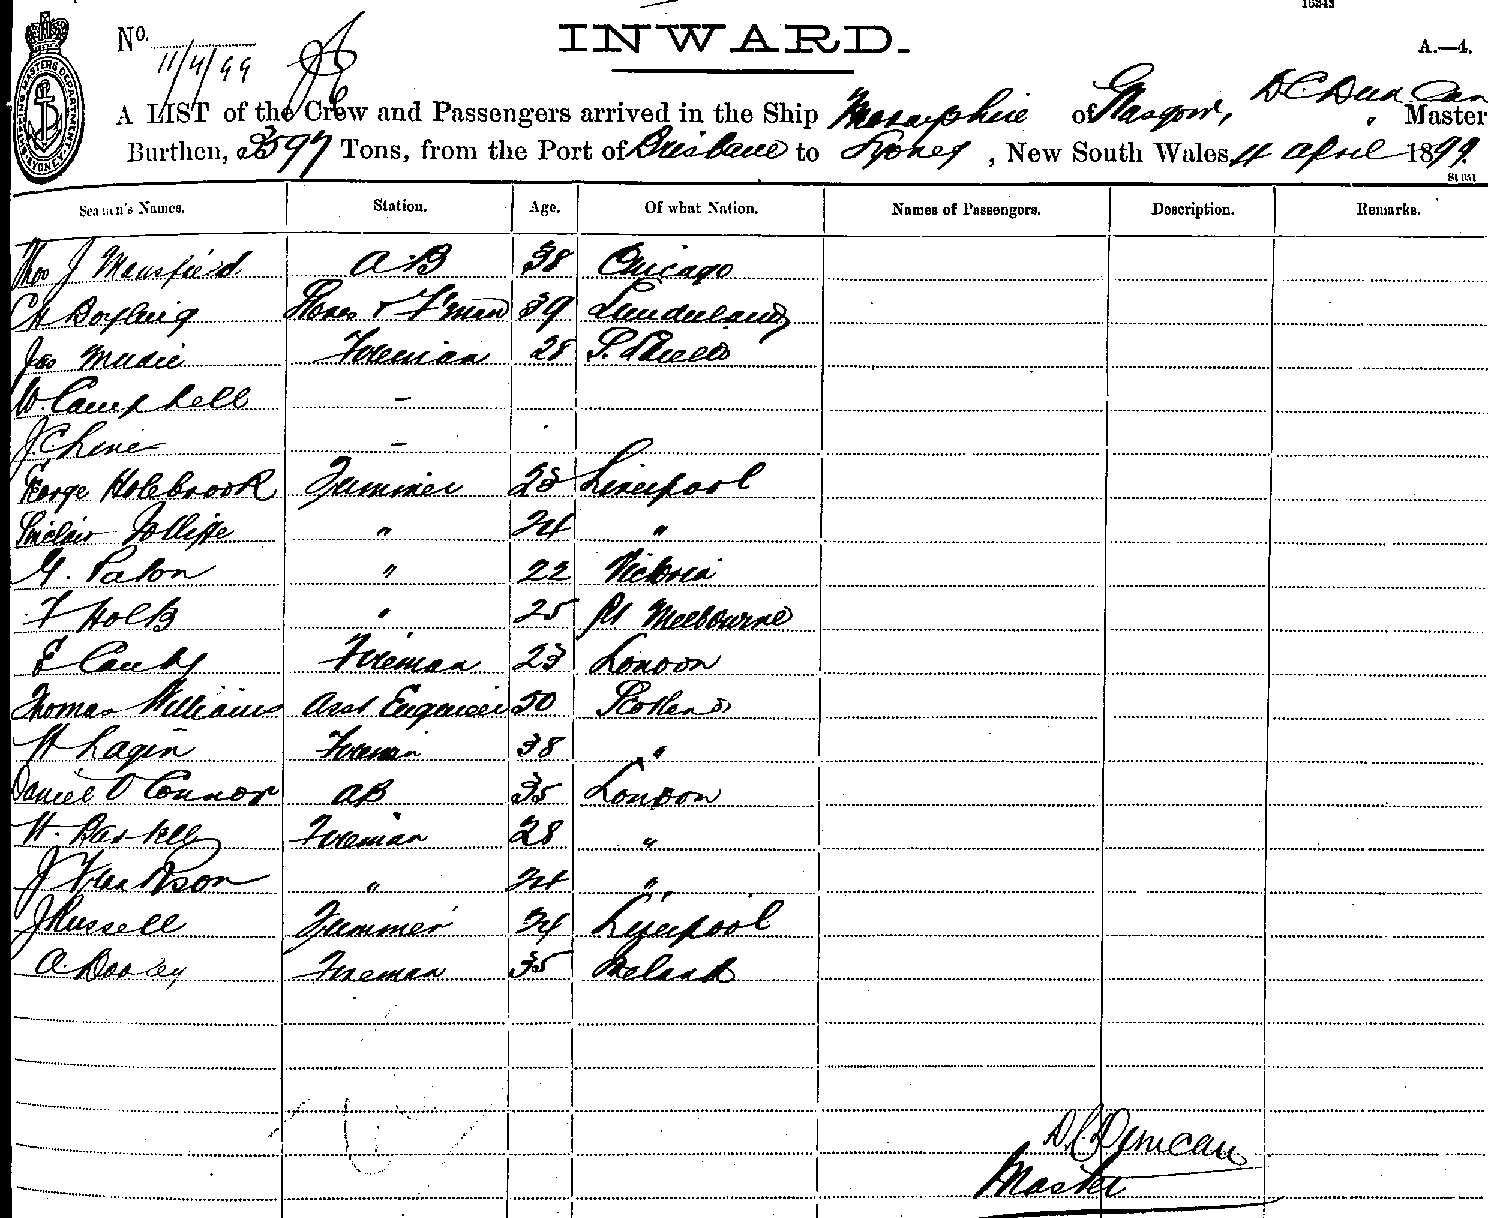 15343
No. 11/4/99
INWARD.
A.—4.
A LIST of the Crew and Passengers arrived in the Ship of Glasgow, D C Duncan Master
Burthen, 3597 Tons, from the Port of Brisbane to Sydney, New South Wales, 11 April 1899.
Seaman's Names. Station. Age. Of what Nation. Names of Passengers. Description. Remarks.
Thos J Mansfield AB 38 Chicago
C H 39 Sunderland
Jas Mudie Fireman 28 S. Shields
W. Campbell –
J. Cline –
George Holebrook Trimmer 23 Liverpool
Sinclair Jolliffe " 24 "
G. Paton " 22 Victoria
F Holt " 25 Pt Melbourne
E Canty Fireman 23 London
Thomas Williams Asst Engineer 50 Scotland
H Lagin Fireman 38 "
Daniel O Connor AB 35 London
H. Fireman 28 "
J " 24 "
J Russell Trimmer 34 Liverpool
A. Dooley Fireman 35 Ireland
D. C. Duncan
Master